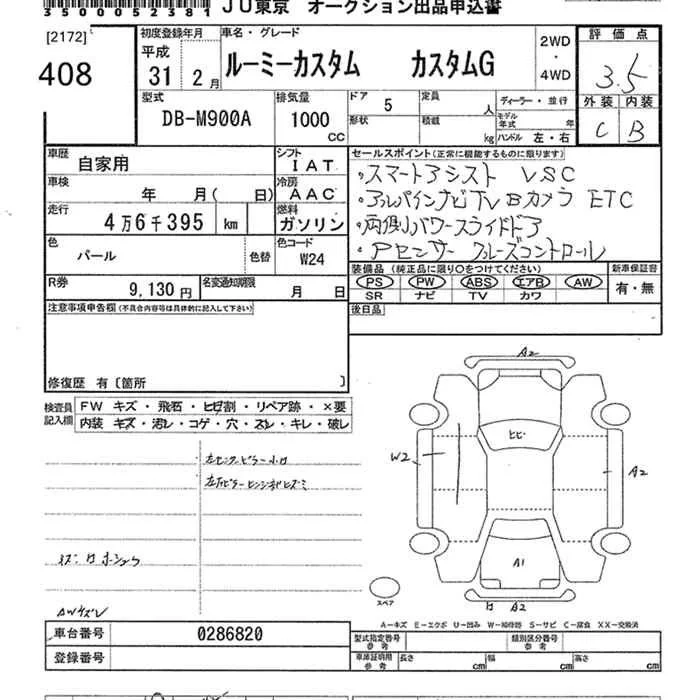 35000052381 JU東京 オークション出品申込書
[2172]
408
初度登録年月
平成
31 2月
車名・グレード
ルーミーカスタム カスタムG
2WD
・
4WD
評価点
3.5
外装 内装
C B
型式
DB-M900A
排気量
1000
cc
ドア
5
定員
人
形状
積載
kg
ディーラー・並行
モデル年式
年
ハンドル 左・右
車歴
自家用
シフト
IAT
車検
年 月( 日)
冷房
AAC
走行
4万6千395 km
燃料
ガソリン
色
パール
色替
色コード
W24
R券
9,130円
名変通知期限
月 日
セールスポイント(正常に機能するものに限ります)
・スマートアシスト VSC
・アルパインナビTV Bカメラ ETC
・両側パワースライドドア
・Pセンサー クルーズコントロール
装備品(純正品に限り○をつけてください)
PS PW ABS エアB AW
SR ナビ TV カワ
新車保証書
有・無
後日品
注意事項申告欄(不具合内容等は具体的に記入して下さい)
修復歴 有〔箇所 〕
検査員
記入欄
FW キズ・飛石・ヒビ割・リペア跡・×要
内装 キズ・汚レ・コゲ・穴・スレ・キレ・破レ
左センターピラー小凹
AWキズレ
A2
ヒビ
W2
A2
A1
A2
スペア
A-キズ E-エクボ U-凹み W-補修跡 S-サビ C-腐食 XX-交換済
車台番号
0286820
登録番号
型式指定番号
参考
類別区分番号
参考
車庫証明用
参考
長さ cm 幅 cm 高さ cm